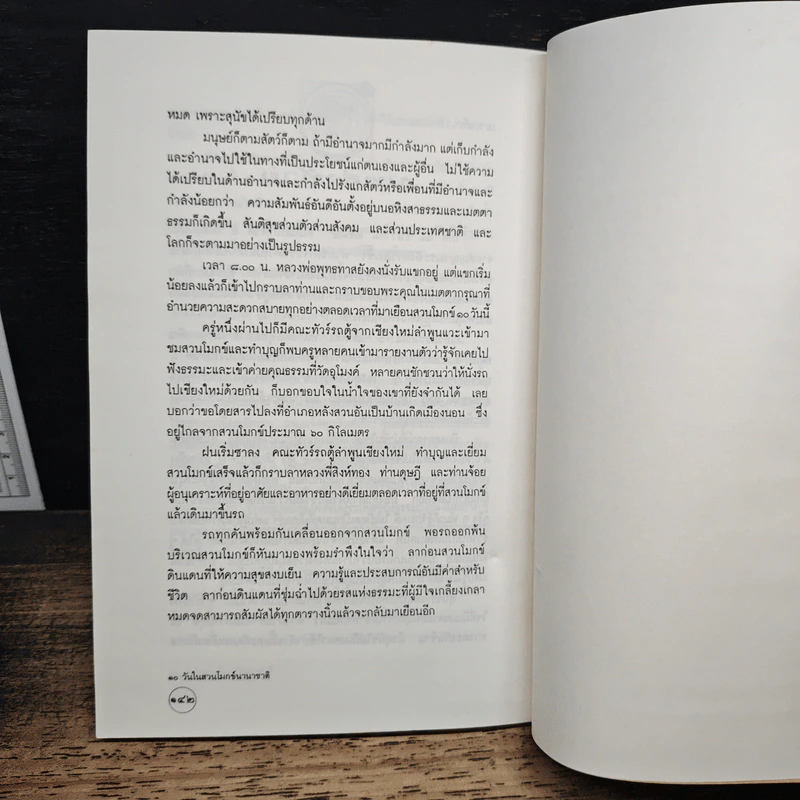 หมด เพราะสุนัขได้เปรียบทุกด้าน
มนุษย์ก็ตามสัตว์ก็ตาม ถ้ามีอำนาจมากมีกำลังมาก แต่เก็บกำลัง
และอำนาจไปใช้ในทางที่เป็นประโยชน์แก่ตนเองและผู้อื่น ไม่ใช้ความ
ได้เปรียบในด้านอำนาจและกำลังไปรังแกสัตว์หรือเพื่อนที่มีอำนาจและ
กำลังน้อยกว่า ความสัมพันธ์อันดีอันตั้งอยู่บนอหิงสาธรรมและเมตตา
ธรรมก็เกิดขึ้น สันติสุขส่วนตัวส่วนสังคม และส่วนประเทศชาติ และ
โลกก็จะตามมาอย่างเป็นรูปธรรม
เวลา ๘.๐๐ น. หลวงพ่อพุทธทาสยังคงนั่งรับแขกอยู่ แต่แขกเริ่ม
น้อยลงแล้วก็เข้าไปกราบลาท่านและกราบขอบพระคุณในเมตตากรุณาที่
อำนวยความสะดวกสบายทุกอย่างตลอดเวลาที่มาเยือนสวนโมกข์ ๑๐ วันนี้
ครู่หนึ่งผ่านไปก็มีคณะทัวร์รถตู้จากเชียงใหม่ลำพูนแวะเข้ามา
ชมสวนโมกข์และทำบุญก็พบครูหลายคนเข้ามารายงานตัวว่ารู้จักเคยไป
ฟังธรรมะและเข้าค่ายคุณธรรมที่วัดอุโมงค์ หลายคนชักชวนว่าให้นั่งรถ
ไปเชียงใหม่ด้วยกัน ก็บอกขอบใจในน้ำใจของเขาที่ยังจำกันได้ เลย
บอกว่าขอโดยสารไปลงที่อำเภอหลังสวนอันเป็นบ้านเกิดเมืองนอน ซึ่ง
อยู่ไกลจากสวนโมกข์ประมาณ ๖๐ กิโลเมตร
ฝนเริ่มซาลง คณะทัวร์รถตู้ลำพูนเชียงใหม่ ทำบุญและเยี่ยม
สวนโมกข์เสร็จแล้วก็กราบลาหลวงพี่สิงห์ทอง ท่านดุษฎี และท่านจ้อย
ผู้อนุเคราะห์ที่อยู่อาศัยและอาหารอย่างดีเยี่ยมตลอดเวลาที่อยู่ที่สวนโมกข์
แล้วเดินมาขึ้นรถ
รถทุกคันพร้อมกันเคลื่อนออกจากสวนโมกข์ พอรถออกพ้น
บริเวณสวนโมกข์ก็หันมามองพร้อมรำพึงในใจว่า ลาก่อนสวนโมกข์
ดินแดนที่ให้ความสุขสงบเย็น ความรู้และประสบการณ์อันมีค่าสำหรับ
ชีวิต ลาก่อนดินแดนที่ชุ่มฉ่ำไปด้วยรสแห่งธรรมะที่ผู้มีใจเกลี้ยงเกลา
หมดจดสามารถสัมผัสได้ทุกตารางนิ้วแล้วจะกลับมาเยือนอีก
๑๐ วันในสวนโมกข์นานาชาติ
๑๔๒